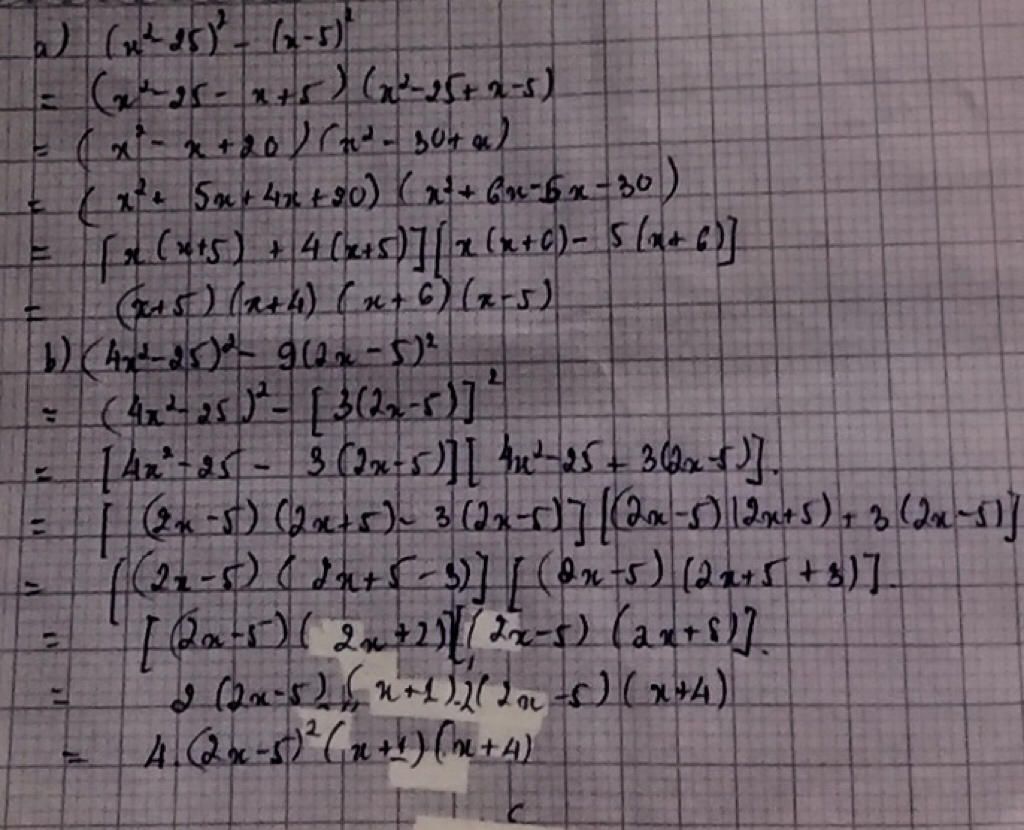 a) (x²-25)² - (x-5)²
= (x²-25 - x+5) (x²-25+x-5)
= (x² - x+20) (x² - 30+x)
= (x² + 5x+4x+20) (x²+6x-5x-30)
= [x(x+5) + 4(x+5)][x(x+6) - 5(x+6)]
= (x+5)(x+4) (x+6)(x-5)
b) (4x²-25)² - 9(2x-5)²
= (4x²-25)² - [3(2x-5)]²
= [4x²-25 - 3(2x-5)][4x²-25 + 3(2x-5)].
= [(2x-5)(2x+5) - 3(2x-5)][(2x-5)(2x+5) + 3(2x-5)]
= [(2x-5)(2x+5-3)] [(2x-5)(2x+5+3)].
= [(2x-5)(2x+2)][(2x-5)(2x+8)].
= 2(2x-5).(x+1).2(2x-5)(x+4)
= 4.(2x-5)²(x+1)(x+4)